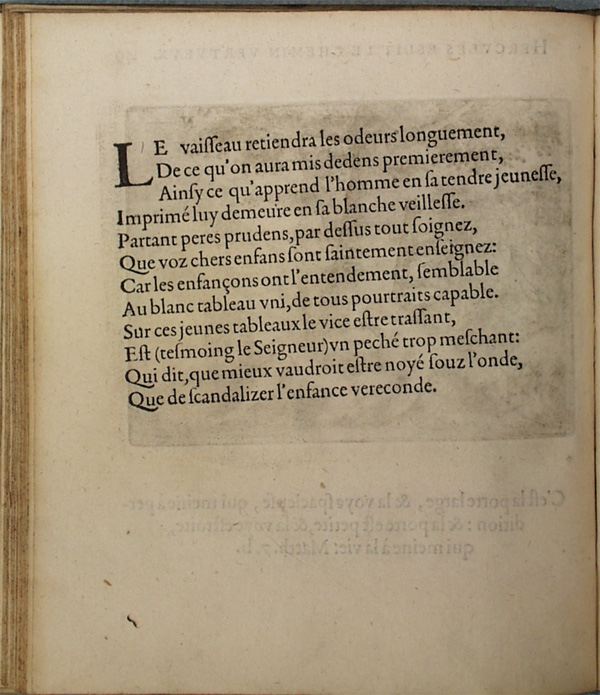 LE vaiſſeau retiendra les odeurs longuement,
De ce qu'on aura mis dedens premierement,
Ainſy ce qu'apprend l'homme en ſa tendre jeuneſſe,
Imprimé luy demeure en ſa blanche veilleſſe.
Partant peres prudens, par deſſus tout ſoignez,
Que voz chers enfans ſont ſaintement enſeignez:
Car les enfançons ont l'entendement, ſemblable
Au blanc tableau vni, de tous pourtraits capable.
Sur ces jeunes tableaux le vice eſtre traſſant,
Eſt (teſmoing le Seigneur) vn peché trop meſchant:
Qui dit, que mieux vaudroit eſtre noyé ſouz l'onde,
Que de ſcandalizer l'enfance vereconde.